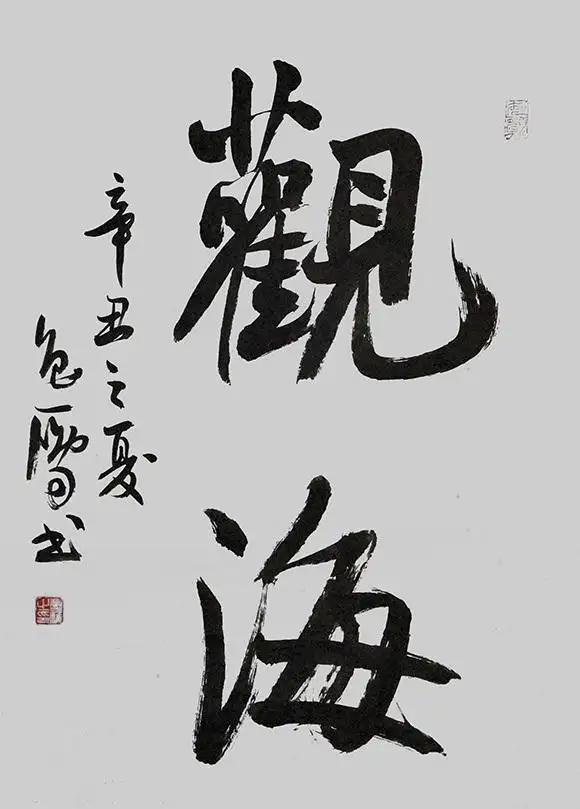 觀海
辛丑之夏
书